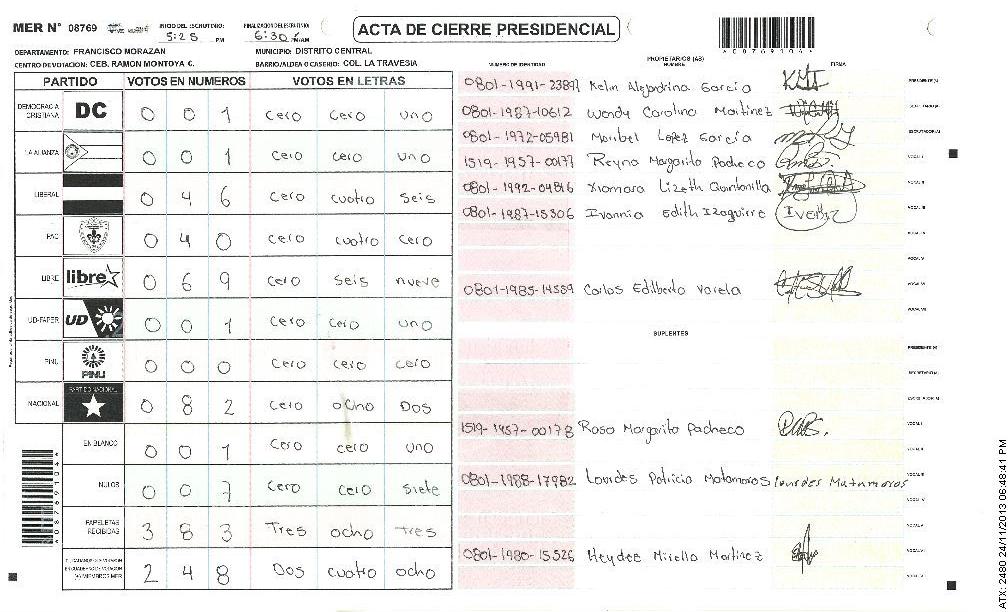 MER N° 08769
INICIO DEL ESCRUTINIO: 5:25 PM
FINALIZACION DEL ESCRUTINIO: 6:30 PM/AM
ACTA DE CIERRE PRESIDENCIAL
DEPARTAMENTO: FRANCISCO MORAZAN
MUNICIPIO: DISTRITO CENTRAL
CENTRO DE VOTACION: CEB. RAMON MONTOYA C.
BARRIO/ALDEA O CASERIO: COL. LA TRAVESIA
PARTIDO VOTOS EN NUMEROS VOTOS EN LETRAS
DEMOCRACIA CRISTIANA DC 0 0 1 cero cero uno
LA ALIANZA 0 0 1 cero cero uno
LIBERAL 0 4 6 cero cuatro seis
PAC 0 4 0 cero cuatro cero
LIBRE libre 0 6 9 cero seis nueve
UD-FAPER UD 0 0 1 cero cero uno
PINU PINU 0 0 0 cero cero cero
NACIONAL PARTIDO NACIONAL 0 8 2 cero ocho Dos
EN BLANCO 0 0 1 cero cero uno
NULOS 0 0 7 cero cero siete
PAPELETAS RECIBIDAS 3 8 3 Tres ocho Tres
2 4 8 Dos cuatro ocho
NUMERO DE IDENTIDAD
PROPIETARIOS (AS)
NOMBRE
FIRMA
0801-1991-23897 Kelin Alejandrina Garcia PRESIDENTE(A)
0801-1987-10612 Wendy Carolina Martinez SECRETARIO(A)
0801-1972-05981 Maribel Lopez Garcia ESCRUTADOR(A)
1519-1957-00177 Reyna Margarita Pacheco VOCAL I
0801-1992-04816 Xiomara Lizeth Quintanilla VOCAL II
0801-1987-15306 Ivannia Edith Izaguirre VOCAL III
VOCAL IV
VOCAL V
0801-1985-14589 Carlos Edilberto Varela VOCAL VI
VOCAL VII
SUPLENTES
PRESIDENTE(A)
SECRETARIO(A)
ESCRUTADOR(A)
1519-1957-00178 Rosa Margarita Pacheco VOCAL I
VOCAL II
0801-1988-17982 Lourdes Patricia Matamoros Lourdes Matamoros VOCAL III
VOCAL IV
VOCAL V
0801-1980-15526 Heydee Mirella Martinez VOCAL VI
VOCAL VII
ATX: 2480 24/11/2013 06:48:41 PM